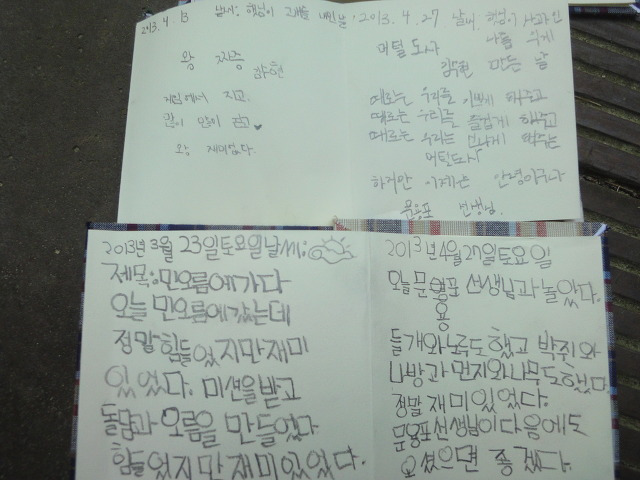 2013. 4. 13 날씨: 햇님이 고개를 내민 날
왕 짜증
게임에서 지고
많이 많이 걷고
왕 재미없다.
2013. 4. 27 날씨: 햇님이
나를 웃게
머털 도사
만든 날
때로는 우리를 기쁘게 해주고
때로는 우리를 즐겁게 해주고
때로는 우리는 신나게 해주는
머털도사
하지만 이제는 안녕이구나
문용포 선생님.
2013년 3월 23일토요일날씨:
제목:민오름에가다
오늘 민오름에갔는데
정말 힘들었지만재미
있었다. 미션을받고
돌담과 오름을 만들었다
힘들었지만재미있었다.
2013년4월27일토요일
오늘문용포 선생님과놀았다.
용
들개와노루도했고 박쥐와
나방과 먼지와나무도했다
정말 재미있었다.
문용포선생님이다음에도
오셨으면 좋겠다.